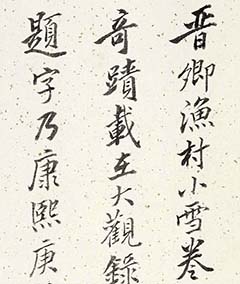 晋卿漁村小雪卷
奇蹟載在大觀錄
題字乃康熙庚